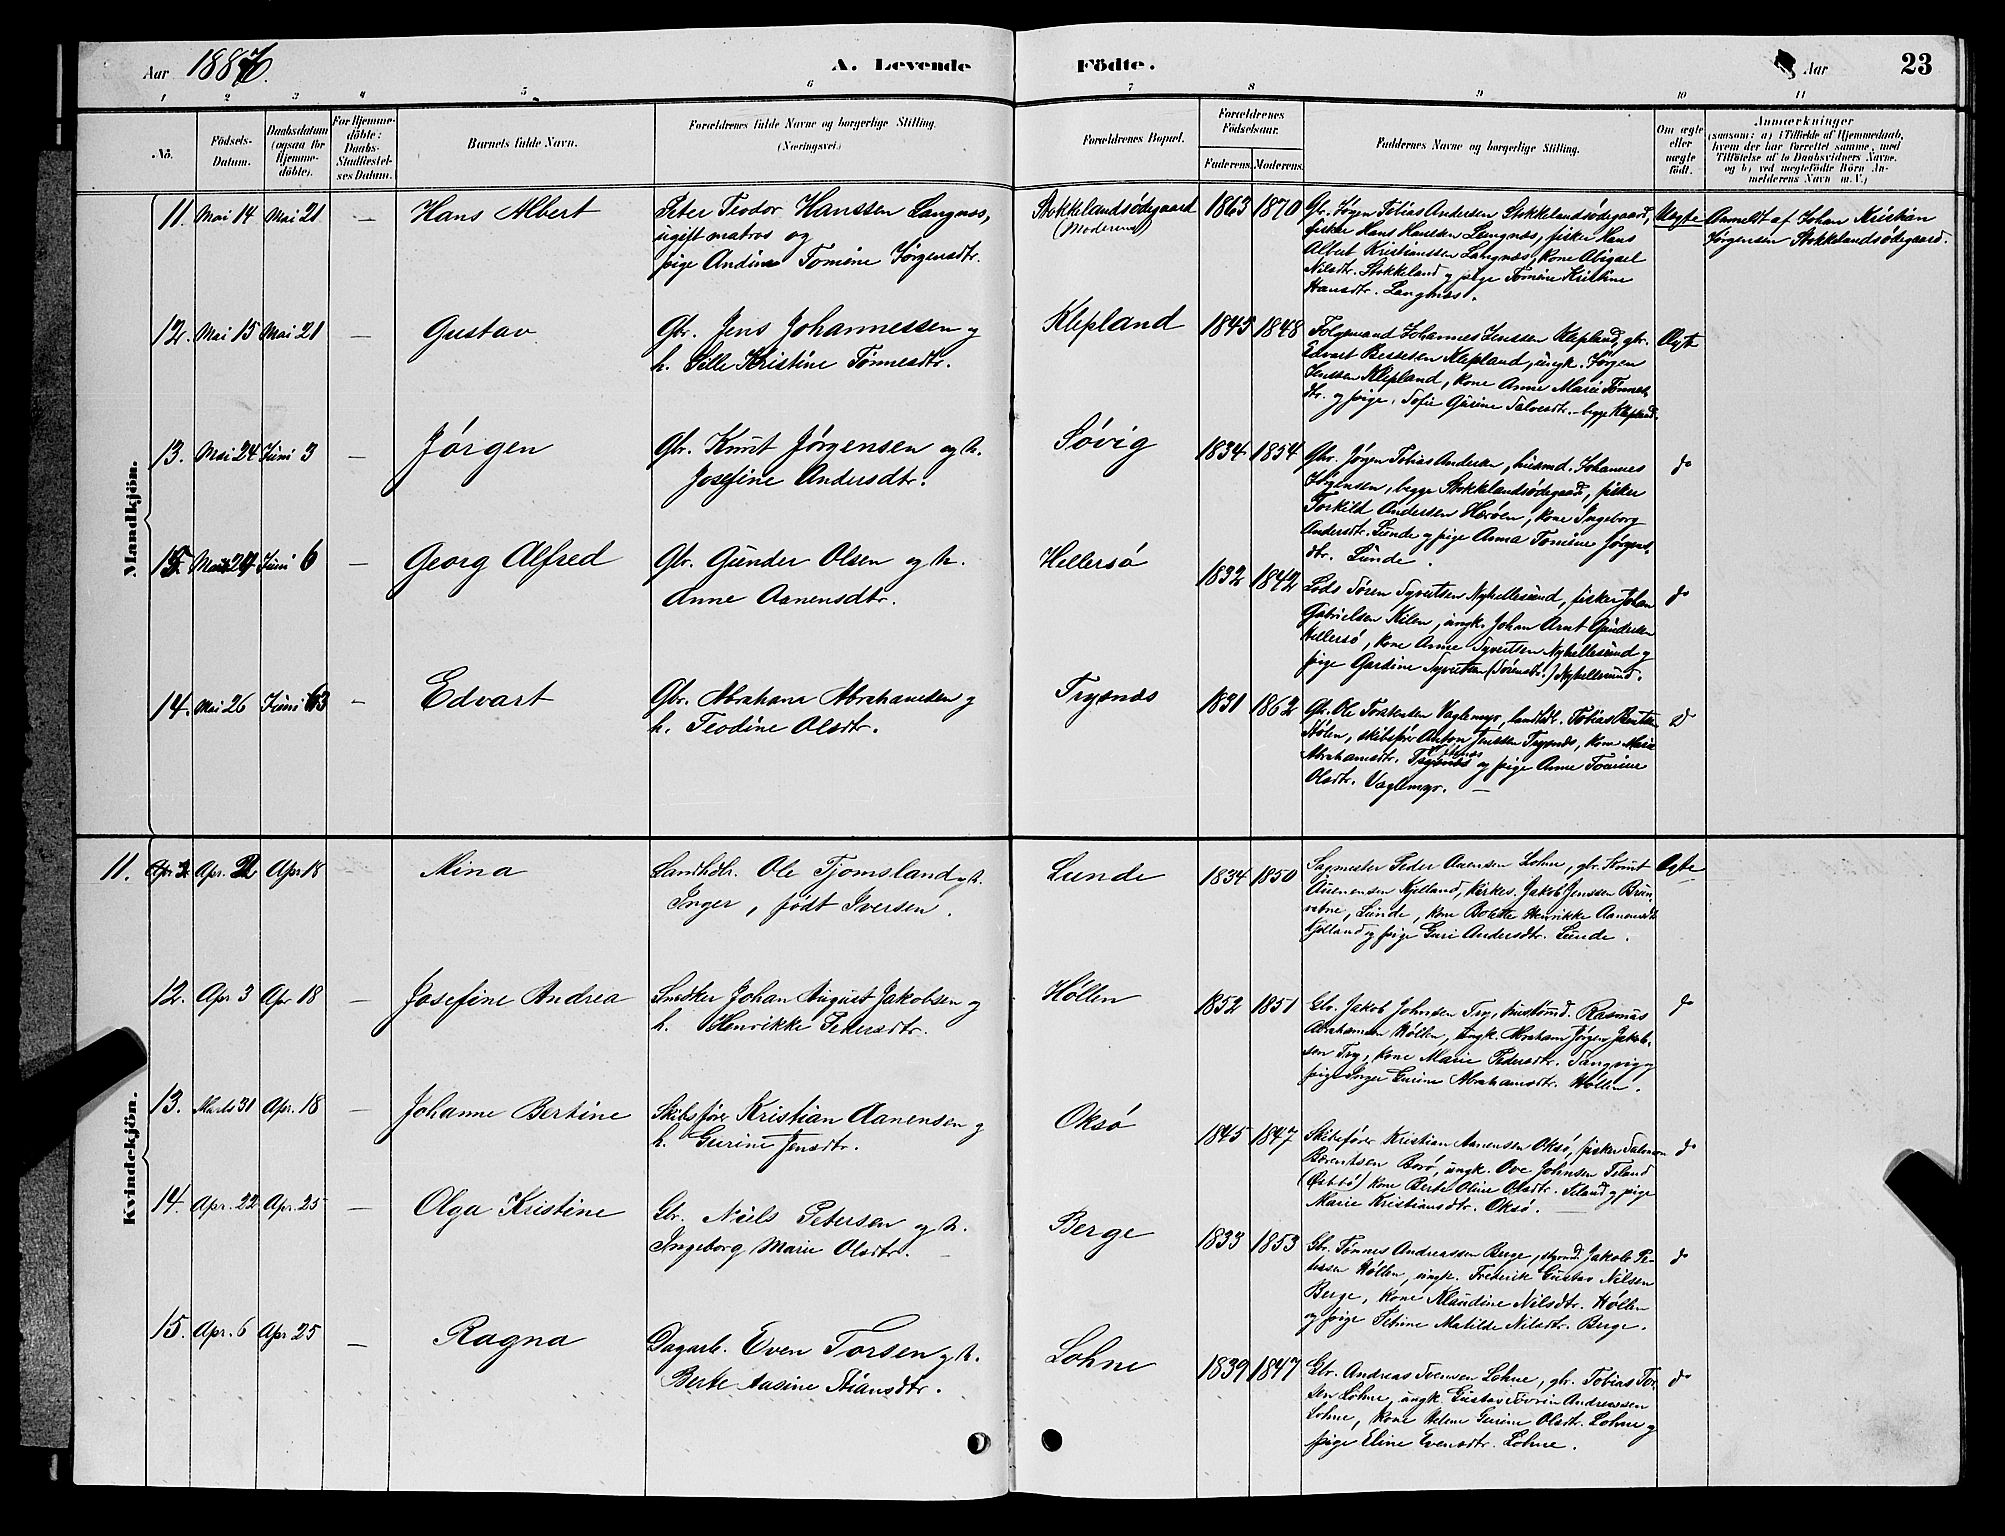 Aar 1886.
A. Levende
Födte.
Aar
23
1 2 3 4 5 6 7 8 9 10 11
No.
Födsels-Datum.
Daabsdatum (ogsaa for Hjemme-döbte).
For Hjemme-döbte: Daabs-Stadfæstel-ses Datum.
Barnets fulde Navn.
Forældrenes fulde Navne og borgerlige Stilling.
(Næringsvei.)
Forældrenes Bopæl.
Forældrenes Födselsaar.
Faderens. Moderens.
Faddernes Navne og borgerlige Stilling.
Om ægte eller uægte födt.
Anmærkninger
(saasom: a) i Tilfælde af Hjemmedaab,
hvem der har forrettet samme, med
Tilföielse af to Daabsvidners Navne.
og b) ved uægtefödte Börn An-
melderens Navn m. V.)
Mandkjön.
11. Mai 14 Mai 21 — Hans Albert
Peter Teodor Hanssen Langnæs,
ugift matros og
pige Andine Tomine Jørgensdtr.
Stokklandsødegaard
(Moderens)
1863 1870
Gbr. Jørgen Tobias Andersen Stokklandsødegaard,
fisker Hans Hansen Langnæs, fisker Hans
Albert Kristianssen Langnæs, kone Abigael
Nilsdtr. Stokkeland og pige Tomine Kristine
Hansdtr. Langnæs.
Uægte
Anmeldt af Johan Kristian
Jørgensen Stokklandsødegaard.
12. Mai 15 Mai 21 — Gustav
Gbr. Jens Johannessen og
h. Sille Kristine Tønnesdtr.
Klepland
1845 1848
Folgemand Johannes Jenssen Klepland, gbr.
Edvart Berntsen Klepland, ungk. Jørgen
Jenssen Klepland, kone Anne Marie Tønnes
dtr. og pige Sofie Gurine Salvesdtr. begge Klepland.
Ægte
13. Mai 24 Juni 3 — Jørgen
Gbr. Knut Jørgensen og h.
Josefine Andersdtr.
Søvig
1834 1854
Gbr. Jørgen Tobias Andersen, husmd. Johannes
Jørgensen, begge Stokklandsødegaard, fisker
Torkild Andersen Herøen, kone Ingeborg
Andersdtr. Lunde og pige Anna Tomine Jørgens-
dtr. Lunde.
do
15. Mai 29 Juni 6 — Georg Alfred
Gbr. Gunder Olsen og h.
Anne Aanensdtr.
Hellersø
1832 1842
Lods Søren Syvertsen Nyhellesund, fisker Johan
Gabrielsen Kilen, ungk. Johan Arnt Gundersen
Hellersø, kone Anne Syvertsen Nyhellesund og
pige Gardine Syvertsen (Sørensdtr.) Nyhellesund.
do
14. Mai 26 Juni 3 - Edvart
Gbr. Abraham Abrahamsen og
h. Teodine Olsdtr.
Trysnæs
1831 1862
Gbr. Ole Torkelsen Vaglemyr, landhdlr. Tobias Berntsen
Stølen, skibsfør. Anton Jenssen Trysnæs, kone Marie
Abrahamsdtr. og pige Anne Tomine
Olsdtr. Vaglemyr. —
do
Kvindekjön.
11. Apr. 2 Apr 18 Mina
Landhdlr. Ole Tjomsland og h.
Inger, født Iversen.
Lunde
1834 1850
Sagmester Peder Anensen Lohne, gbr. Knut
Aanensen Kjelland, kirkes. Jakob Jenssen Brun-
vatne, Lunde, kone Bolette Henrikke Aanensdtr
Kjelland og pige Guri Andersdtr. Lunde.
Ægte
12. Apr 3 Apr 18 — Josefine Andrea
Snedker Johan August Jakobsen og
h. Henrikke Petersdtr.
Høllen
1852 1851
Gbr. Jakob Johnsen Try, Rasmus
Abrahamsen Høllen, ungk. Abraham Jørgen Jakob-
sen Try, kone Marie Pedersdtr. Tangvig og
pige Inger Gurine Abrahamsdtr. Høllen.
do
13. Marts 31 Apr. 18 — Johanne Bertine
Skibsfører Kristian Aanensen og
h. Gurine Jensdtr.
Oksø
1845 1847
Skibsfører Kristian Aanensen Oksø, fisker Salmon
Berentsen Borø, ungk. Ove Johnsen Teland
kone Berte Oline Olsdtr. Teland og pige
Marie Kristiansdtr. Oksø.
do
14. Apr. 22 Apr. 25 — Olga Kristine
Gbr. Niels Petersen og h.
Ingeborg Marie Olsdtr.
Berge
1833 1853
Gbr. Tønnes Andreassen Berge, styrmd. Jakob Pe-
tersen Høllen, ungk. Frederik Gustav Nilsen
Berge, kone Klaudine Nilsdtr. Høllen
og pige Petrine Matilde Nilsdtr. Berge.
do
15. Apr. 6 Apr 25 — Ragna
Dagarb. Even Torsen og h.
Berte Aasine Stiansdtr.
Lohne
1839 1847
Gbr. Andreas Svensen Lohne, gbr. Tobias Tor-
sen Lohne, ungk. Gustav Andreassen
Lohne, kone Helene Gurine Olsdtr. Lohne og
pige Eline Evensdtr. Lohne.
do